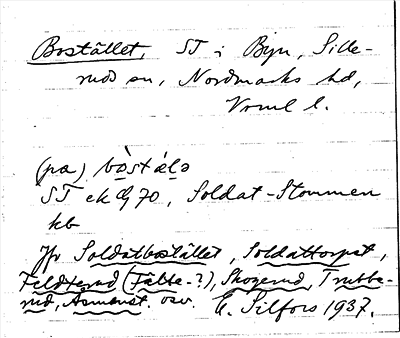 Bostället, ST i Byn, Sille-
rud sn, Nordmarks hd,
Vrml l.
(pa) bòstálə
ST ek 70, Soldat-Stommen
kb
Jfr Soldatbostället, Soldattorpet,
Feldterud (Fälte-?), Skogerud, Trubbe-
rud, osv. E. Silfors 1937.